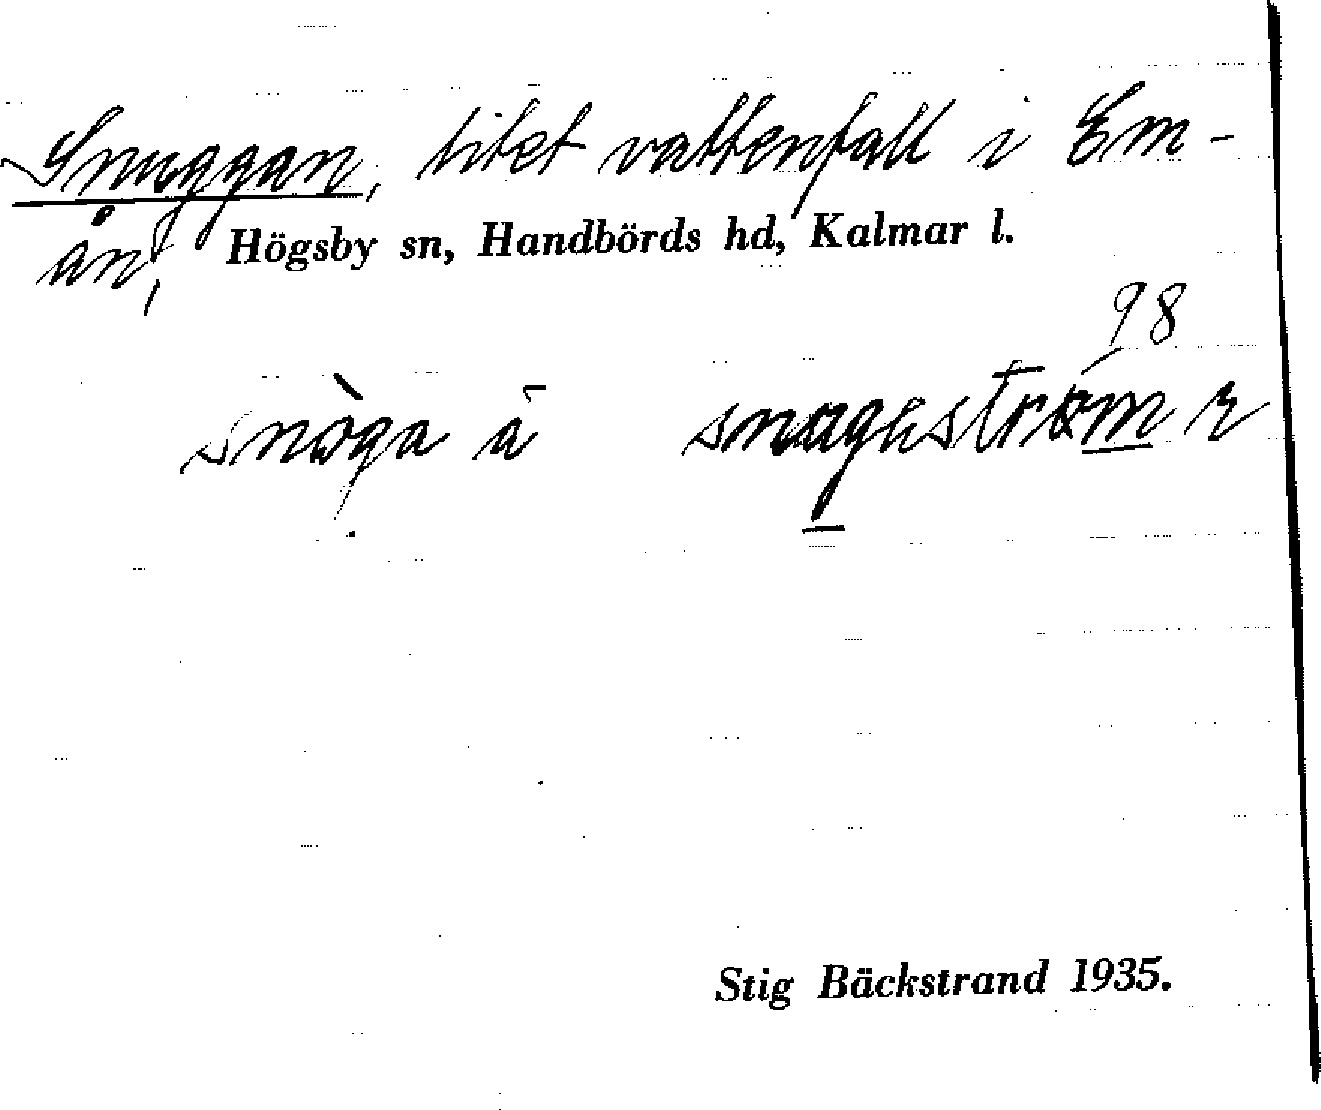 Snuggan, litet vattenfall i Em-
ån,
Högsby sn, Handbörds hd, Kalmar l.
98
snòga å
Stig Bäckstrand 1935.